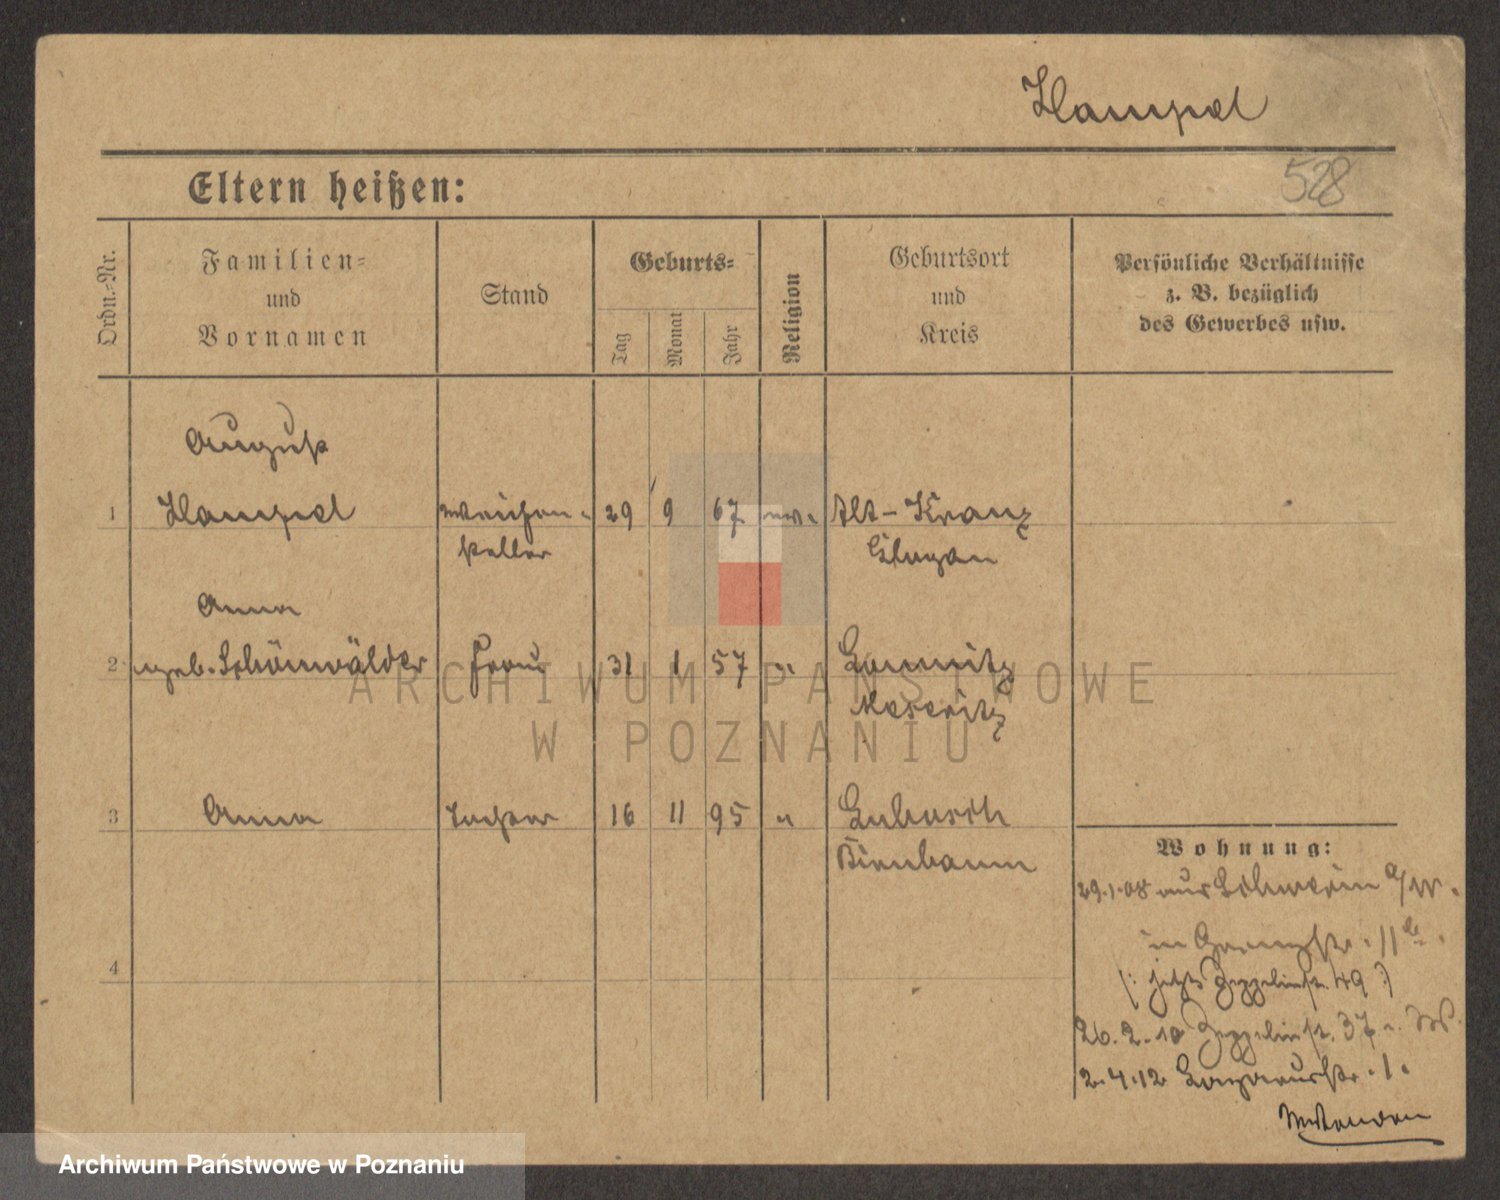 Hampel
528
Eltern heißen:
Ordn.-Nr.
Familien-
und
Vornamen
Stand
Geburts-
Tag
Monat
Jahr
Religion
Geburtsort
und
Kreis
Persönliche Verhältnisse
z. B. bezüglich
des Gewerbes usw.
August
1 Hampel Weichen- 29 9 67 ev. Alt-Kranz
steller Glogau
Anna
2 geb. Schönwälder Frau 31 1 57 " Lomnitz
Meseritz
3 Anna Tochter 16 11 95 " Lubosch
Birnbaum
4
Wohnung:
29.1.08 aus Schwerin a/W.
in
(: jetzt Zeppelinstr. 49 :)
26.2.10 Zeppelinstr. 37
2.4.12 Lazarusstr. 1.
ARCHIWUM PAŃSTWOWE
W POZNANIU
Archiwum Państwowe w Poznaniu